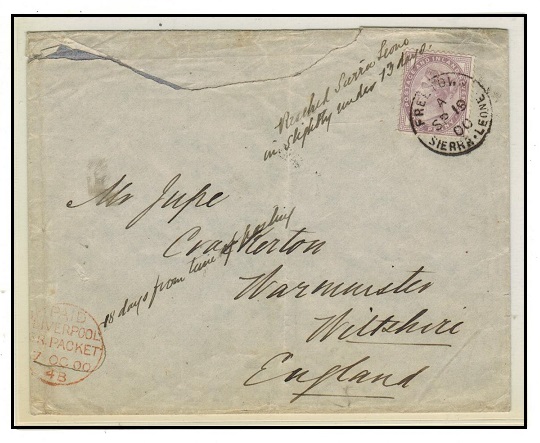 Reached Sierra Leone
in slightly under 13 days.
POSTAGE AND INLAND
FREETOWN
A
SP 18
00
SIERRA·LEONE
Mr Jupe
Crockerton
18 days from time of posting
Warminster
Wiltshire
England
PAID
LIVERPOOL
BR. PACKET
7 OC 00
4B